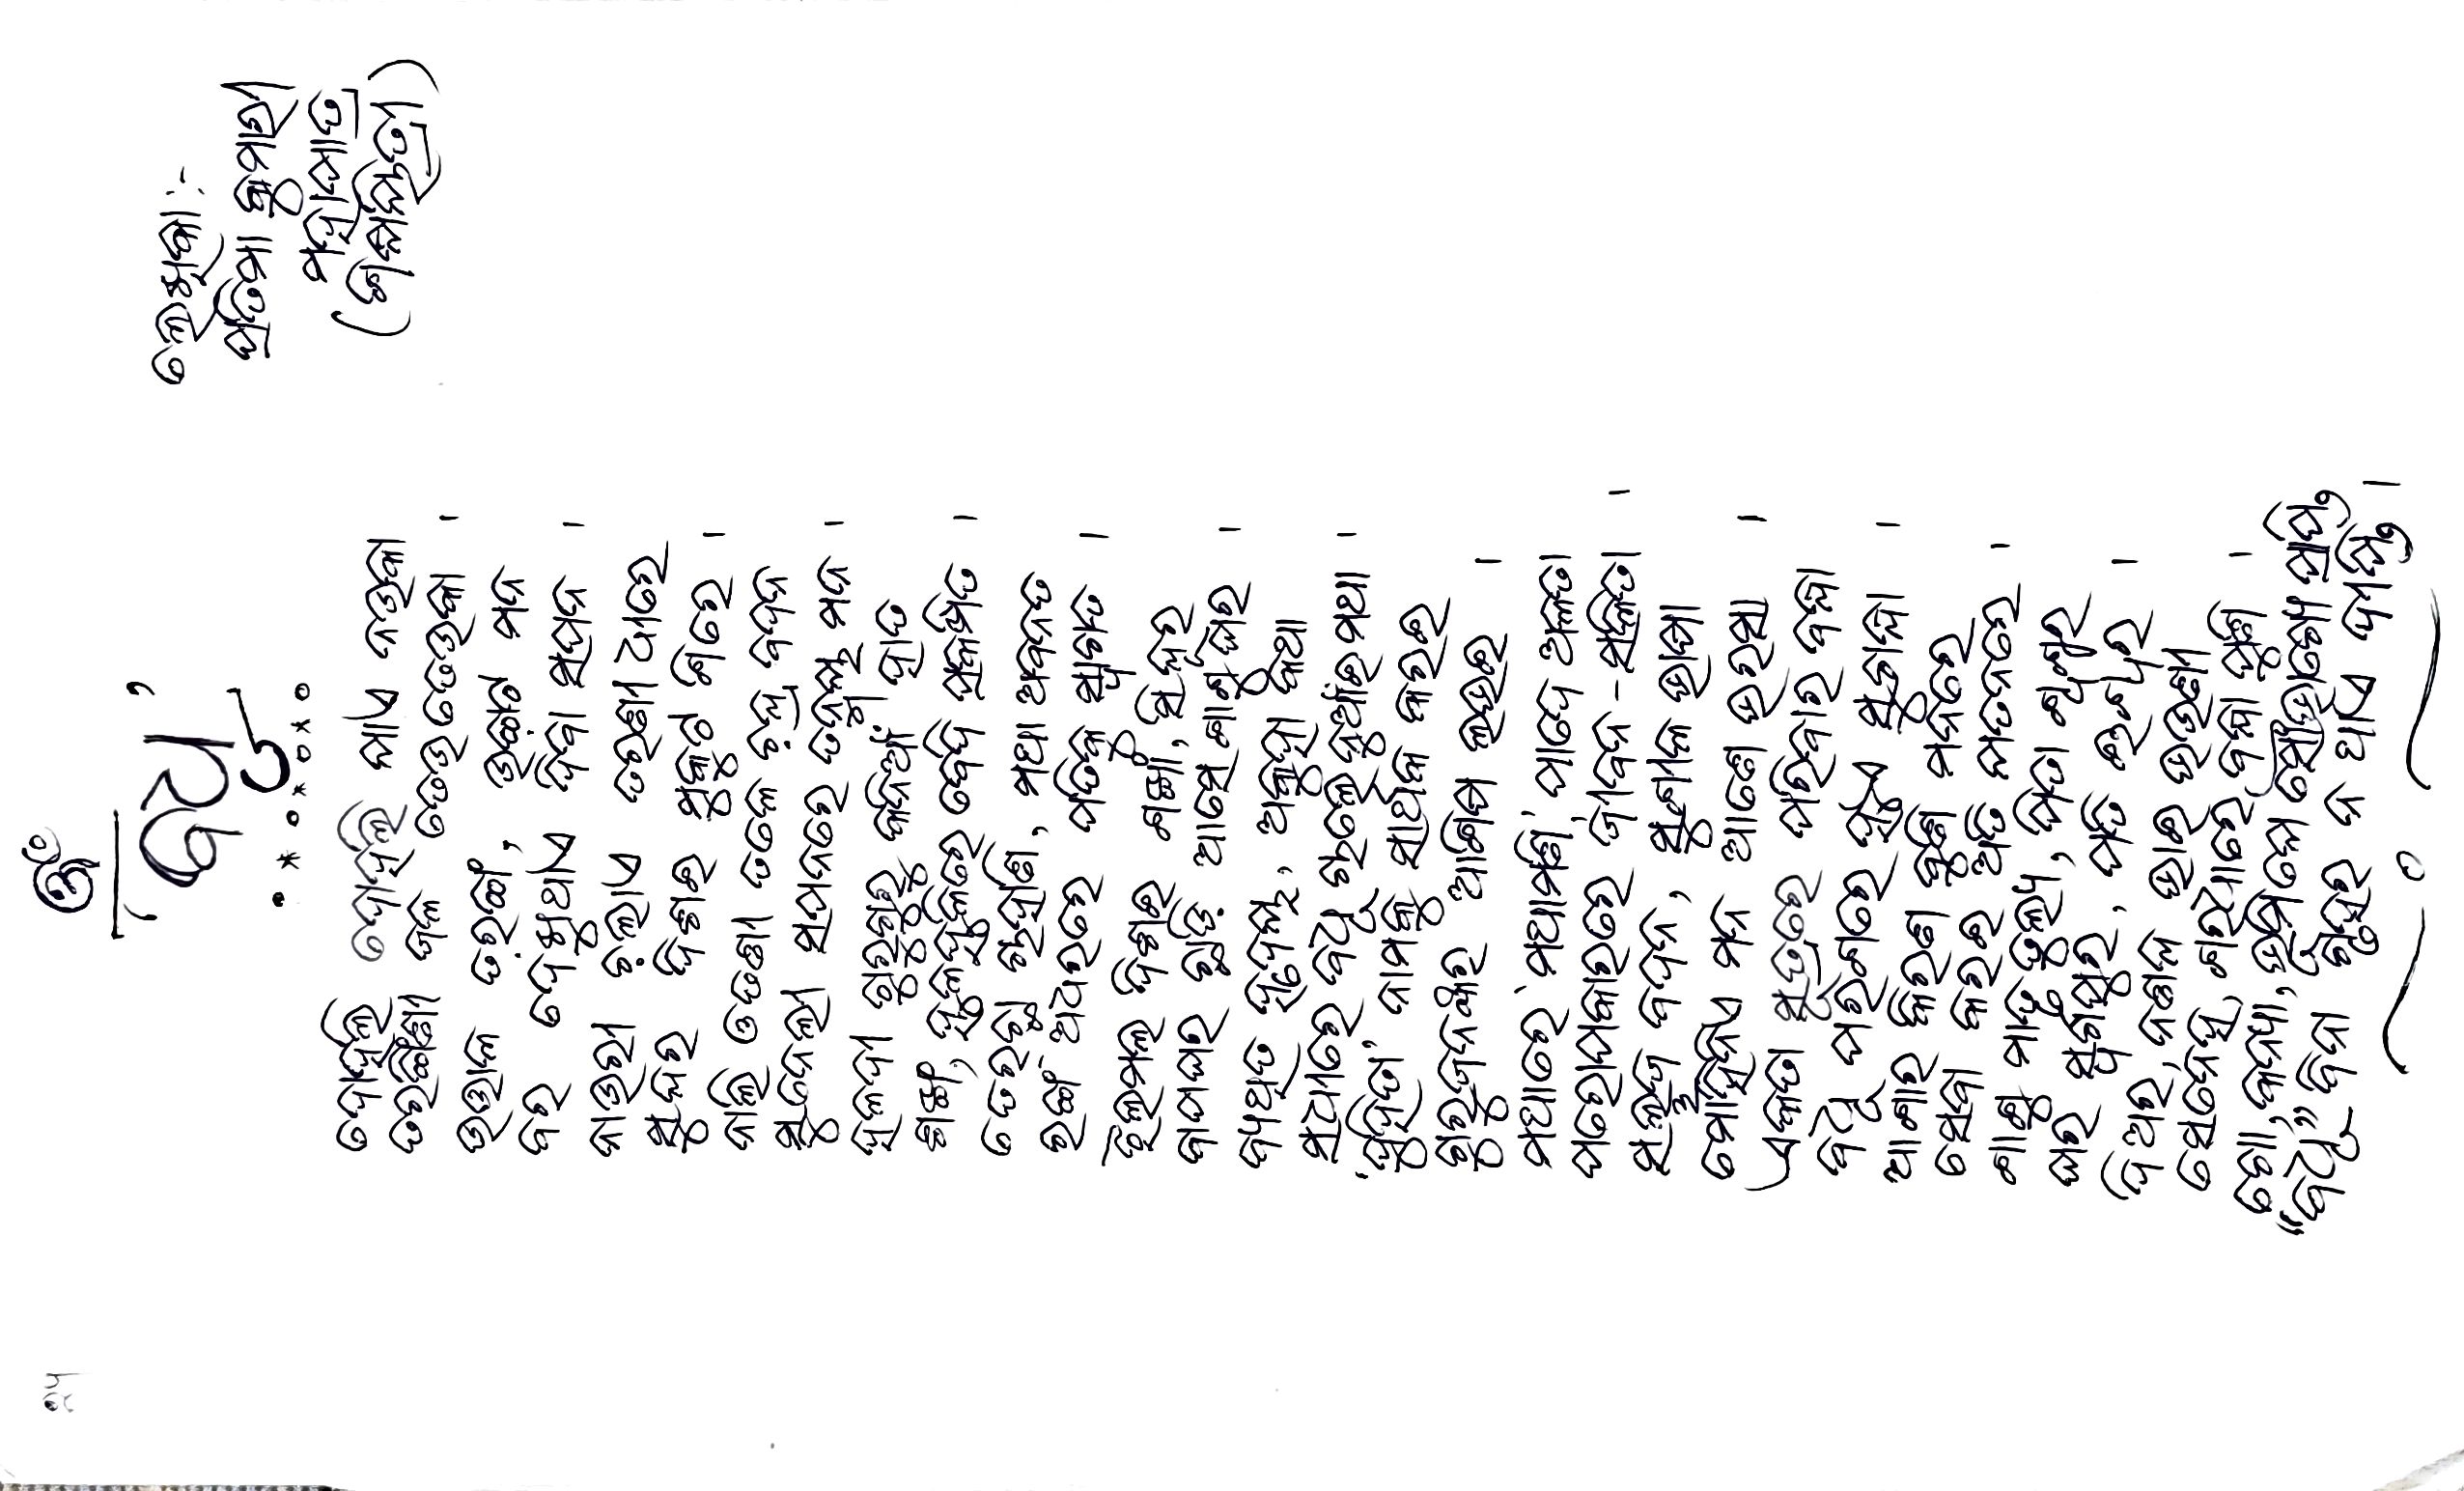 ୨୫
ଓଁ
'ବଧୂ'
ଲେଖିକା :-
ପ୍ରତିମା କୁମାରୀ
ମହାପାତ୍ର
(ଶିକ୍ଷୟିତ୍ରୀ)
ଦୋହଲି ଦୋହଲି ଯାଏ ନଉକା
ତରଙ୍ଗିଣୀ ଜଳ ଢେଉଢେଉକା ।
ଉତ୍ତାଳ ତରଙ୍ଗ, ଉଚ୍ଚାଟ ମନ
ବର ଦେଖୁଥାଏ ଦିବା ସପନ ।
ନାଉରୀ ଚଲାଏ ତରଣୀ ଧୀରେ
ସୁନ୍ଦର ଦିଶଇ ମୁକୁଟ ଶିରେ ।
ନାଲି ଓଢଣୀ ତଳେ ଚନ୍ଦ୍ର ବଦନ
ସୁନେଲୀ ସପନରେ ତନ୍ମୟ ମନ ।
ହଳଦୀ ଗୁରୁଗୁରୁ କନିଆଁ ହାତ
ଶଙ୍ଖ, ହୁଳହୁଳିରେ ବେଦି ପ୍ରକମ୍ପିତ ।
ତେରଛା ଚାହାଣି, ମଥା ଅବନତ
ରଙ୍ଗ ଅଧରରେ ପତିକୁ ସ୍ୱାଗତ ।
ଝିଲମଲ ଦିଶଇ ଶଙ୍ଖା, ସିନ୍ଦୂର
ବାପଘର ଛାଡ଼ି ଆସେ ଶାଶୁଘର ।
ବ୍ୟଥିତ ହୃଦୟ, ଅକୁହା କଥା
ସଧୀରେ ବଧୂ ଚାଲେ ନୁଆଁଇ ମଥା ।
'ଦୁହିତା' ନାମକୁ ସାର୍ଥକ କରଇ
ଗୁରୁଜନଙ୍କର ଆଶିଷ ଲଭଇ ।
ମଥାରେ 'ମଥାମଣି' ପାଦେ ଅଳତା
ପରୋପକାରରେ ଜୀବନ-ସଳିତା ।
ସଲ୍ଲଜ ବଦନ, ସୁଶୀଳ ଭାଷା
ମୋହିନିଏ ମନ ଆଣେ ଭରସା ।
ଏକତା ସୂତ୍ରରେ ପରିବାର ବନ୍ଧା
ବଧୂ ପରଶରେ ହୁଏ ସୁଗନ୍ଧା ।
ଆଶାର କିରଣ ବୁଣି ମନରେ
ସେବା କରଇ ଅତି ଯତନରେ ।
ଶାଶୁ ମାତୃତୁଲ୍ୟ, ପିତା ଶ୍ୱଶୁର
ଘର ସ୍ୱର୍ଗପୁର, ପତି ଈଶ୍ୱର ।
ଦିଅର, ନଣନ୍ଦ ଭାଇ ଭଉଣୀ
ସେନେହ, ଶରଧାରେ ବନ୍ଧା ପୁଣି ।
ଗୋ, କନ୍ୟା, ଭୂମି ଯେ ସୌଭାଗ୍ୟେ ପ୍ରାପ୍ତି
"ବଧୂ" ବିନା ଗୃହର ନ ଥାଏ ଦୀପ୍ତି ।